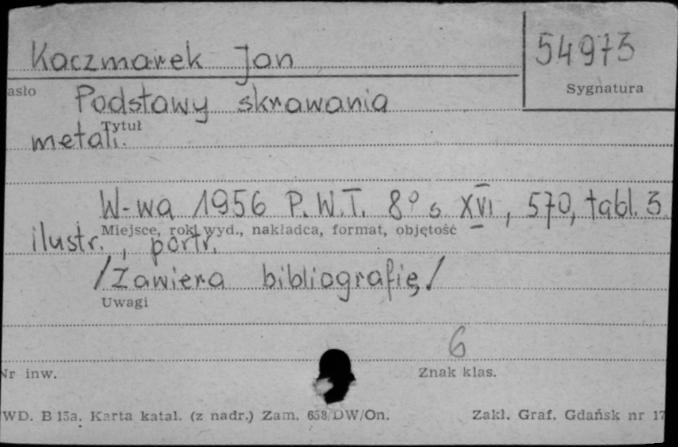 Kaczmarek Jan
54973
asło
Sygnatura
Podstawy skrawania
Tytuł
metali.
W-wa 1956 P.W.T. 8° s. XVI, 570, tabl. 3
Miejsce, rok wyd., nakładca, format, objętość
ilustr., portr.
/Zawiera bibliografię/
Uwagi
6
Nr inw.
Znak klas.
WD. B 15a. Karta katal. (z nadr.) Zam. 658/DW/On.
Zakl. Graf. Gdańsk nr 17